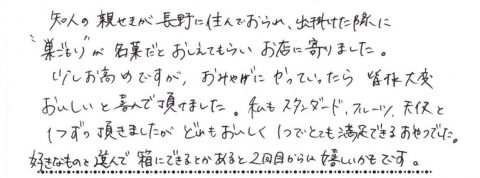 知人の親せきが長野に住んでおられ、出掛けた際に
"巣ごもり"が名菓だとおしえてもらいお店に寄りました。
少しお高めですが、おみやげにやっていったら皆様大変
おいしいと喜んで頂けました。私もスタンダード、フルーツ、天使と
1つずつ頂きましたがどれもおいしく1つでとても満足できるおやつでした。
好きなものと選んで箱にできるとかあると2回目からは嬉しいかもです。